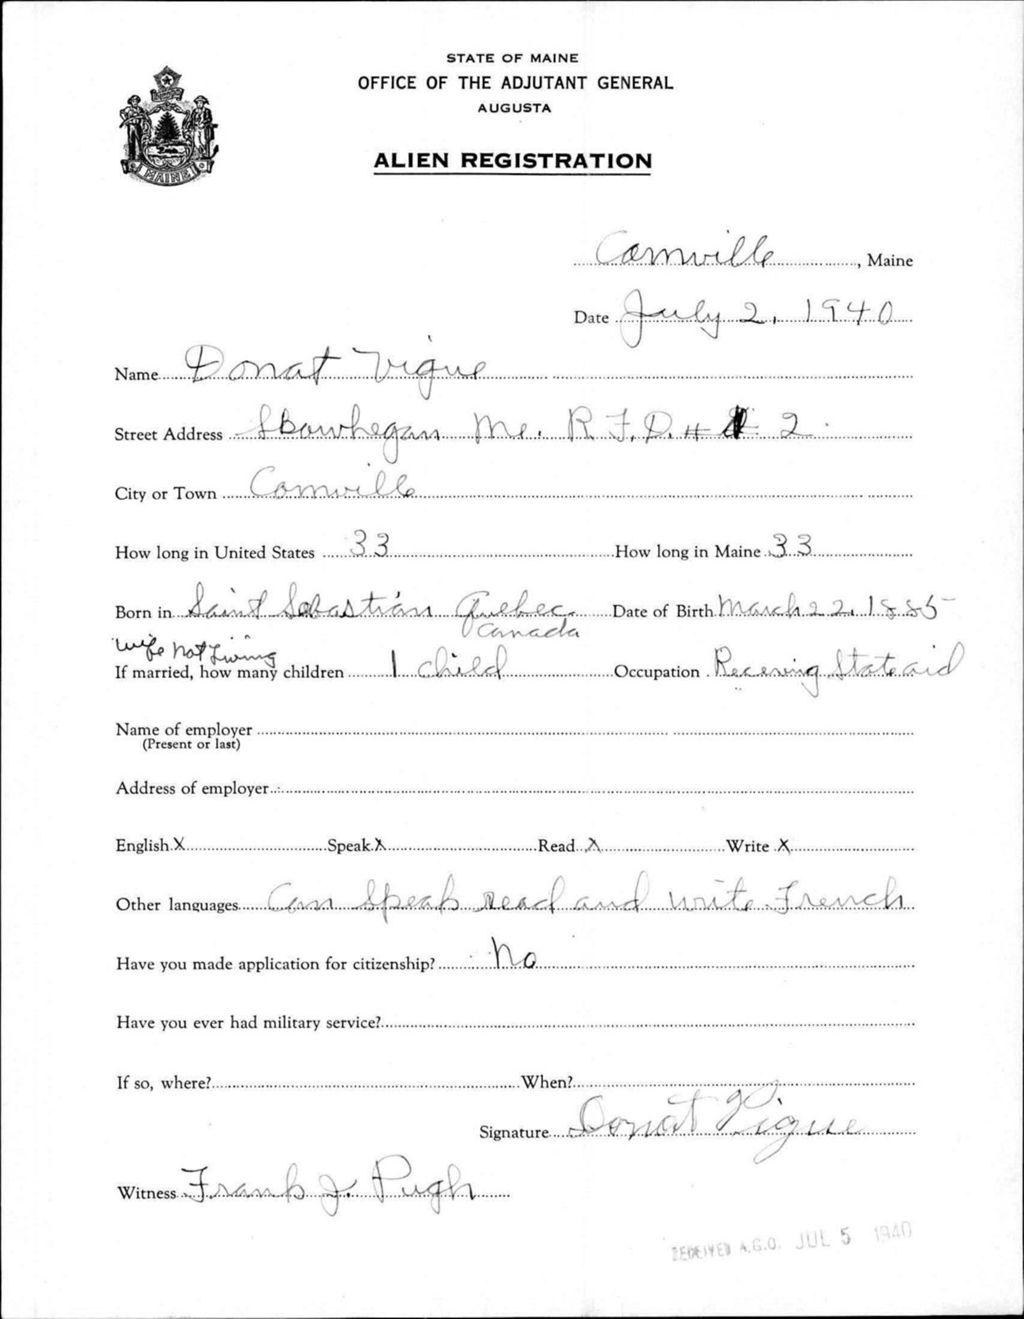 STATE OF MAINE
OFFICE OF THE ADJUTANT GENERAL
AUGUSTA
ALIEN REGISTRATION
MAINE
Cornville, Maine
Date July 2, 1940
Name Donat Vigue
Street Address Skowhegan Me. R.F.D. # 2
City or Town Cornville
How long in United States 33 How long in Maine 33
Born in Saint Sebastian Quebec Canada Date of Birth March 22, 1885
Wife Not Living
If married, how many children 1 child Occupation Receiving State aid
Name of employer
(Present or last)
Address of employer
English X Speak X Read X Write X
Other languages Can Speak read and write French
Have you made application for citizenship? No
Have you ever had military service?
If so, where? When?
Signature Donat Vigue
Witness Frank J. Pugh
RECEIVED A.G.O. JUL 5 1940